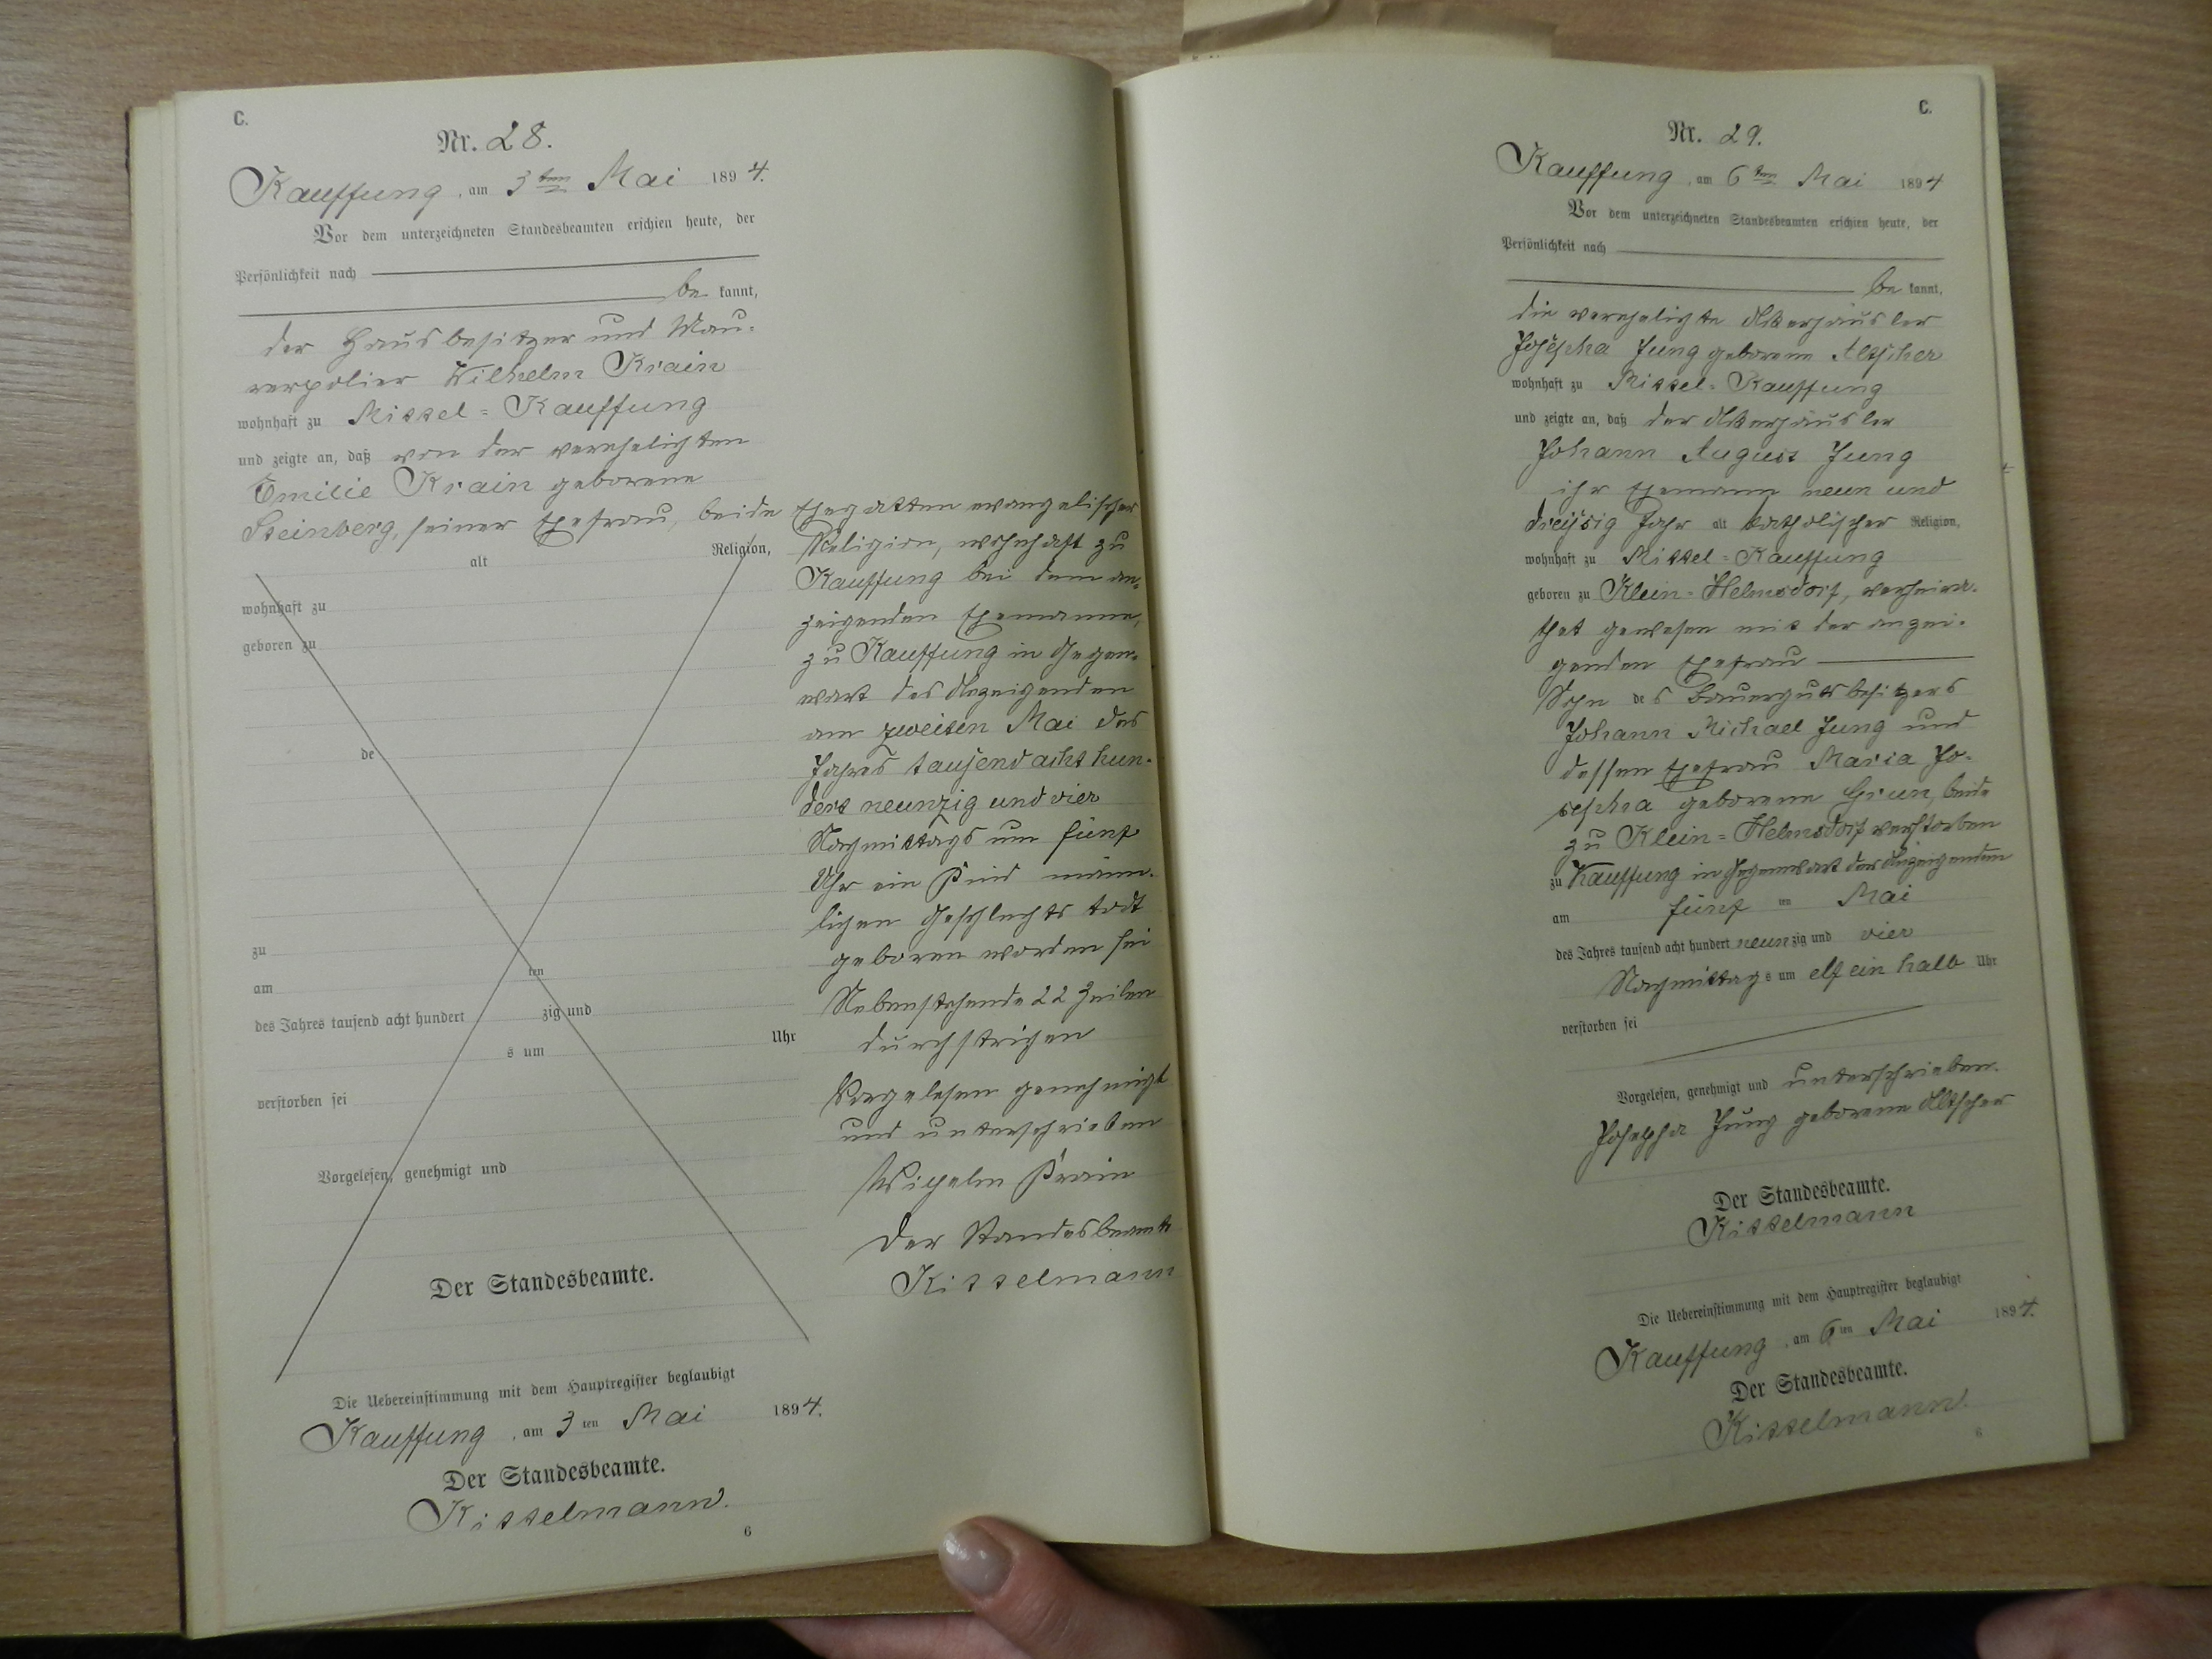 C.
Nr. 28.
Kauffung, am 3ten Mai 1894.
Vor dem unterzeichneten Standesbeamten erschien heute, der
Persönlichkeit nach
be kannt,
der Hausbesitzer und Mau-
rerpolier Wilhelm Krain
wohnhaft zu Mittel-Kauffung
und zeigte an, daß von der verehelichten
Emilie Krain geborene
Steinberg, seiner Ehefrau, beide
alt Religion,
wohnhaft zu
geboren zu
de
zu
am ten
des Jahres tausend acht hundert zig und
s um Uhr
verstorben sei
Vorgelesen, genehmigt und
Der Standesbeamte.
Die Uebereinstimmung mit dem Hauptregister beglaubigt
Kauffung, am 3 ten Mai 1894.
Der Standesbeamte.
Kittelmann.
6
Ehegatten evangelischer
Religion, wohnhaft zu
Kauffung bei dem an-
zeigenden Ehemanne,
zu Kauffung in Gegen-
wart des Anzeigenden
am zweiten Mai des
Jahres tausend acht hun-
dert neunzig und vier
Nachmittags um fünf
Uhr ein Kind männ-
lichen Geschlechts todt
geboren worden sei
Nebenstehende 22 Zeilen
durchstrichen
Vorgelesen genehmigt
und unterschrieben
Wilhelm Krain
Der Standesbeamte
Kittelmann
C.
Nr. 29.
Kauffung, am 6ten Mai 1894
Vor dem unterzeichneten Standesbeamten erschien heute, der
Persönlichkeit nach
be kannt,
die verehelichte Ackerhäusler
Josepha Jung geborene Altscher
wohnhaft zu Mittel-Kauffung
und zeigte an, daß der Ackerhäusler
Johann August Jung
ihr Ehemann neun und
dreißig Jahr alt katholischer Religion,
wohnhaft zu Mittel-Kauffung
geboren zu Klein-Helmsdorf, verheira-
thet gewesen mit der anzei-
genden Ehefrau
Sohn des Bauergutsbesitzers
Johann Michael Jung und
dessen Ehefrau Maria Jo-
sepha geborene Grun, beide
zu Klein-Helmsdorf verstorben
zu Kauffung in Gegenwart der Anzeigenden
am fünf ten Mai
des Jahres tausend acht hundert neunzig und vier
Nachmittags um elf ein halb Uhr
verstorben sei
Vorgelesen, genehmigt und unterschrieben.
Josepha Jung geborene Altscher
Der Standesbeamte.
Kittelmann
Die Uebereinstimmung mit dem Hauptregister beglaubigt
Kauffung, am 6 ten Mai 1894.
Der Standesbeamte.
Kittelmann.
6